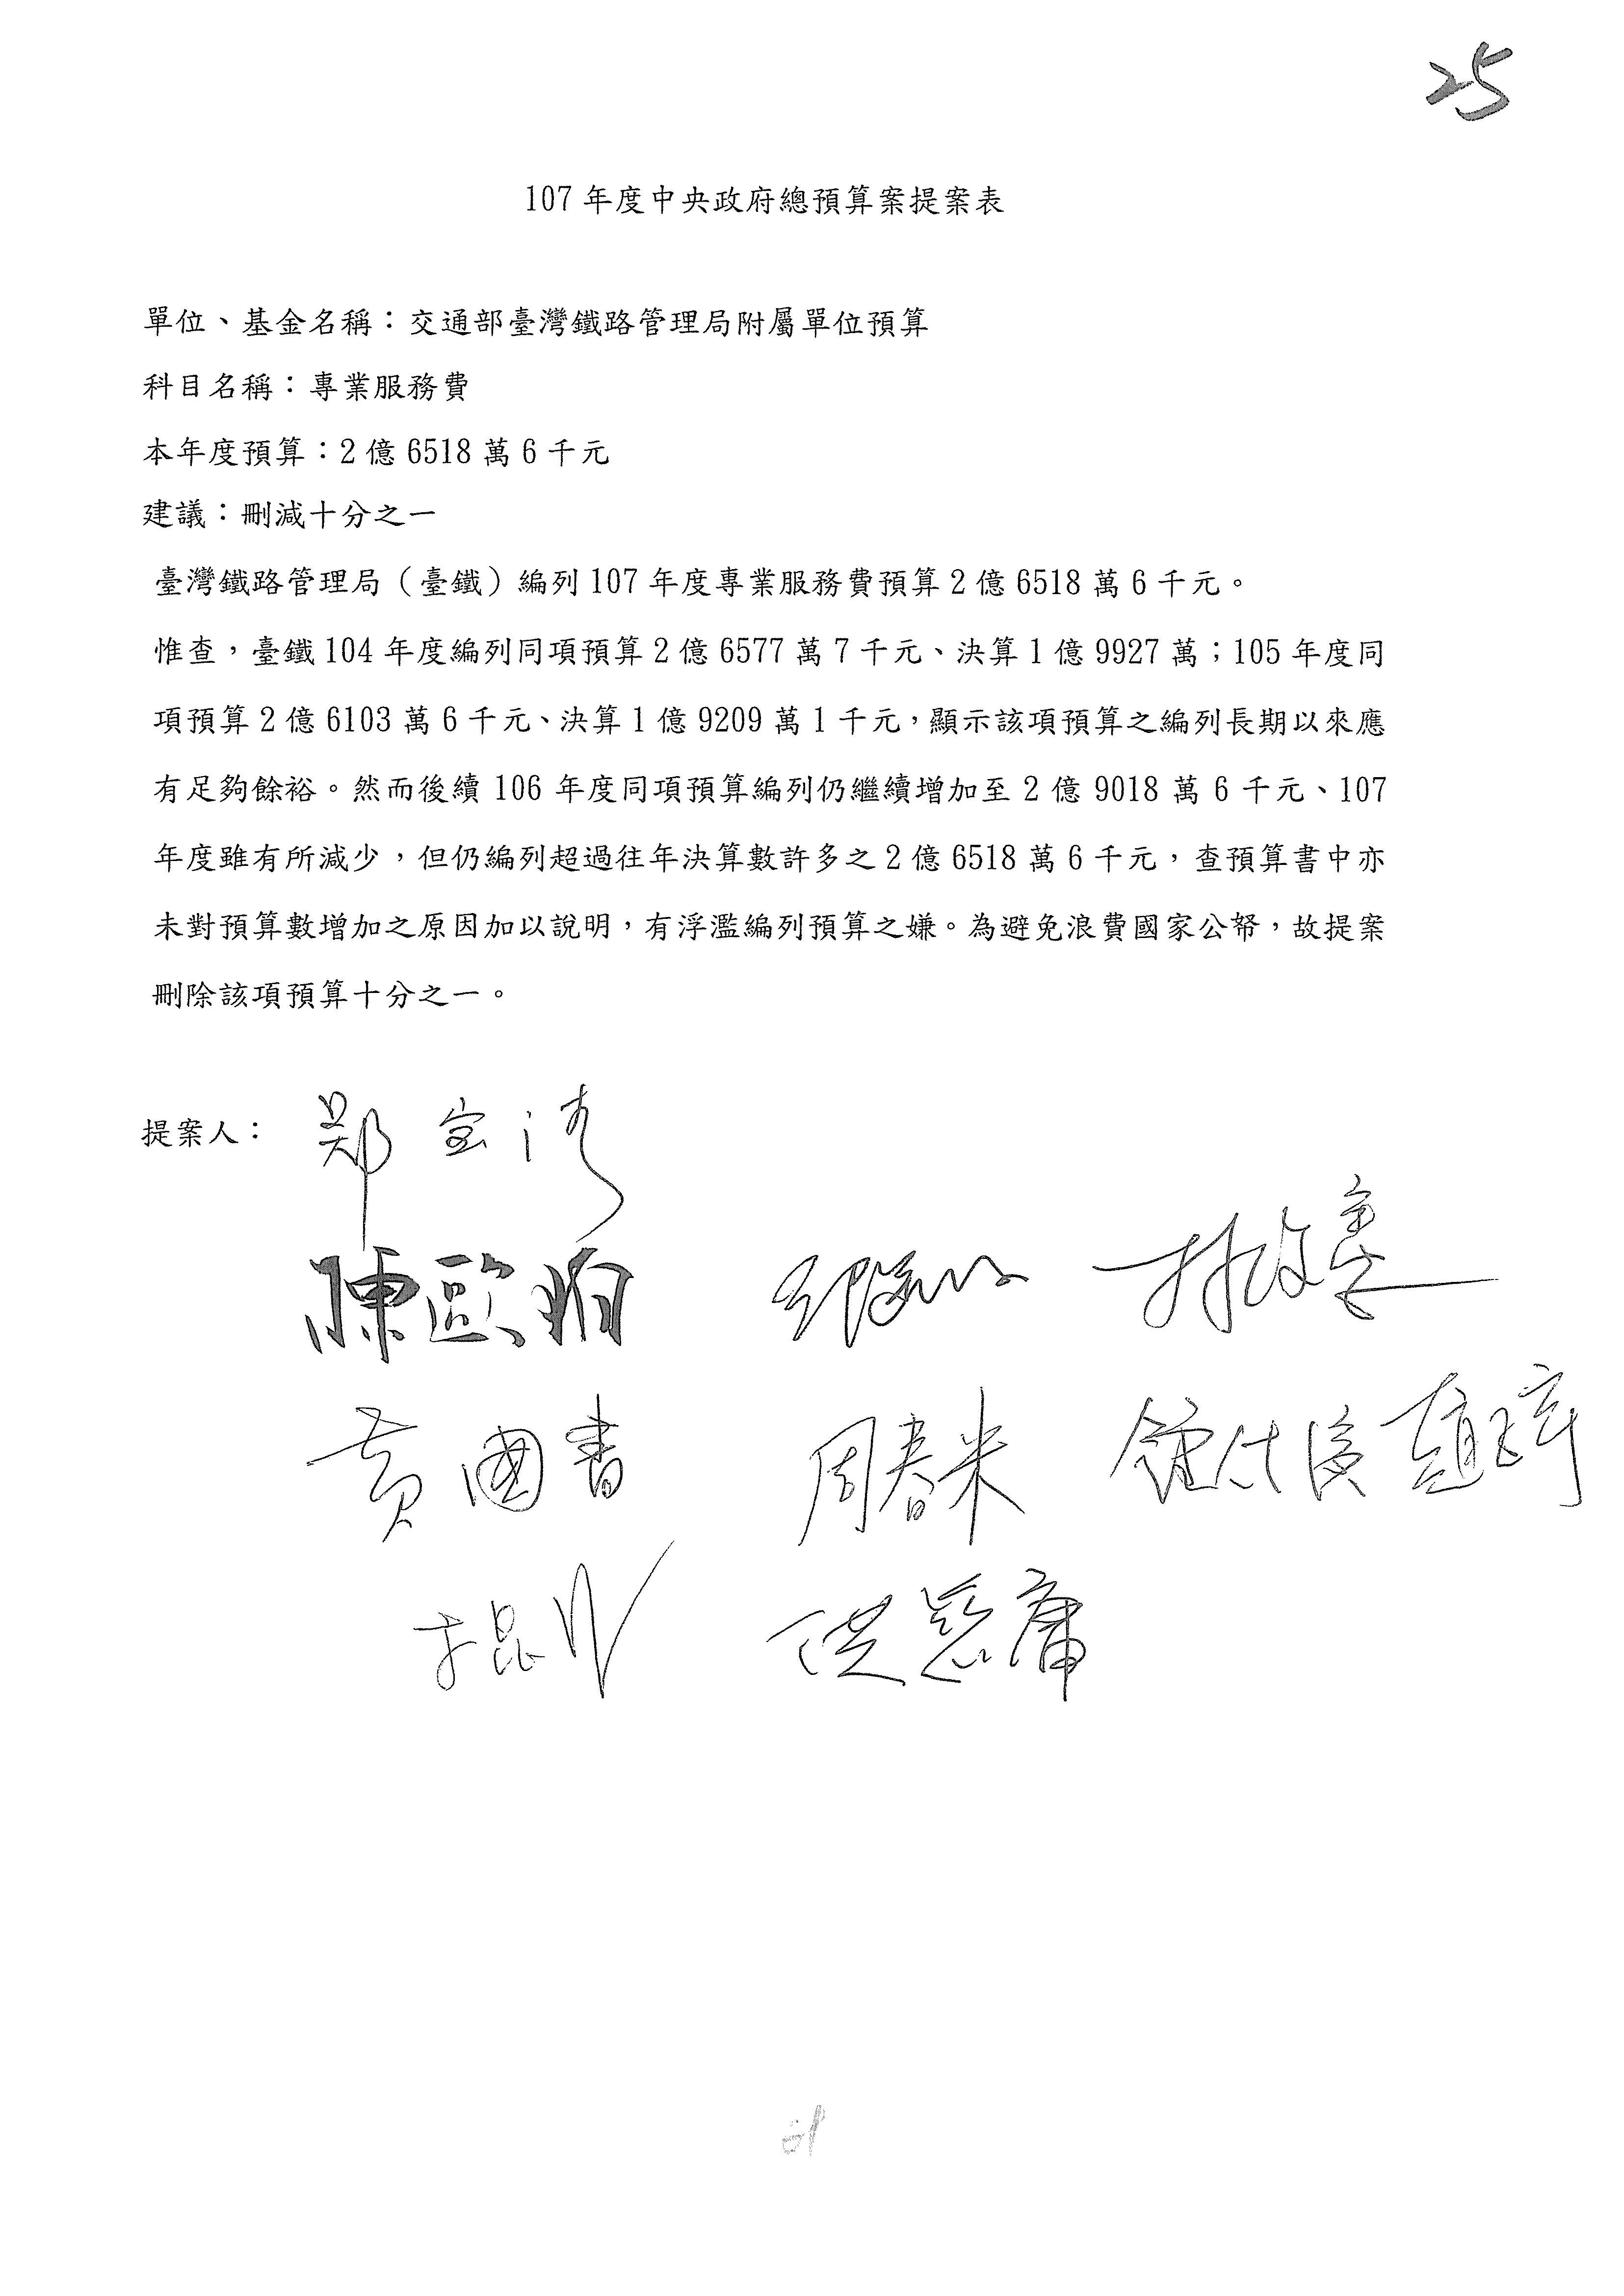 25
107 年度中央政府總預算案提案表
單位、基金名稱：交通部臺灣鐵路管理局附屬單位預算
科目名稱：專業服務費
本年度預算：2 億 6518 萬 6 千元
建議：刪減十分之一
臺灣鐵路管理局（臺鐵）編列 107 年度專業服務費預算 2 億 6518 萬 6 千元。
惟查，臺鐵 104 年度編列同項預算 2 億 6577 萬 7 千元、決算 1 億 9927 萬；105 年度同
項預算 2 億 6103 萬 6 千元、決算 1 億 9209 萬 1 千元，顯示該項預算之編列長期以來應
有足夠餘裕。然而後續 106 年度同項預算編列仍繼續增加至 2 億 9018 萬 6 千元、107
年度雖有所減少，但仍編列超過往年決算數許多之 2 億 6518 萬 6 千元，查預算書中亦
未對預算數增加之原因加以說明，有浮濫編列預算之嫌。為避免浪費國家公帑，故提案
刪除該項預算十分之一。
提案人：鄭宝清
陳歐珀
黃國書 周春米 鍾佳濱 趙正宇
洪慈庸